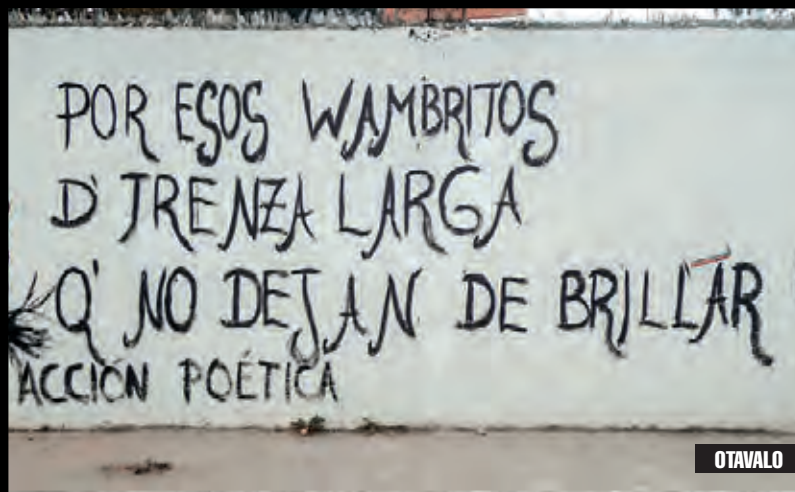 POR ESOS WAMBRITOS
D' TRENZA LARGA
Q' NO DEJAN DE BRILLAR
ACCIÓN POÉTICA
OTAVALO